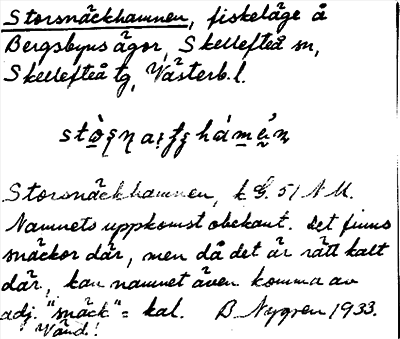 Storsnäckhamnen, fiskeläge å
Bergsbyns ägor, Skellefteå sn,
Skellefteå tg, Västerb. l.
Storsnäckhamnen, k G. 51 NM.
Namnets uppkomst obekant. Det finns
snäckor där, men då det är rätt kalt
där, kan namnet även komma av
adj. "snäck" = kal. B. Nygren 1933.
Vänd!